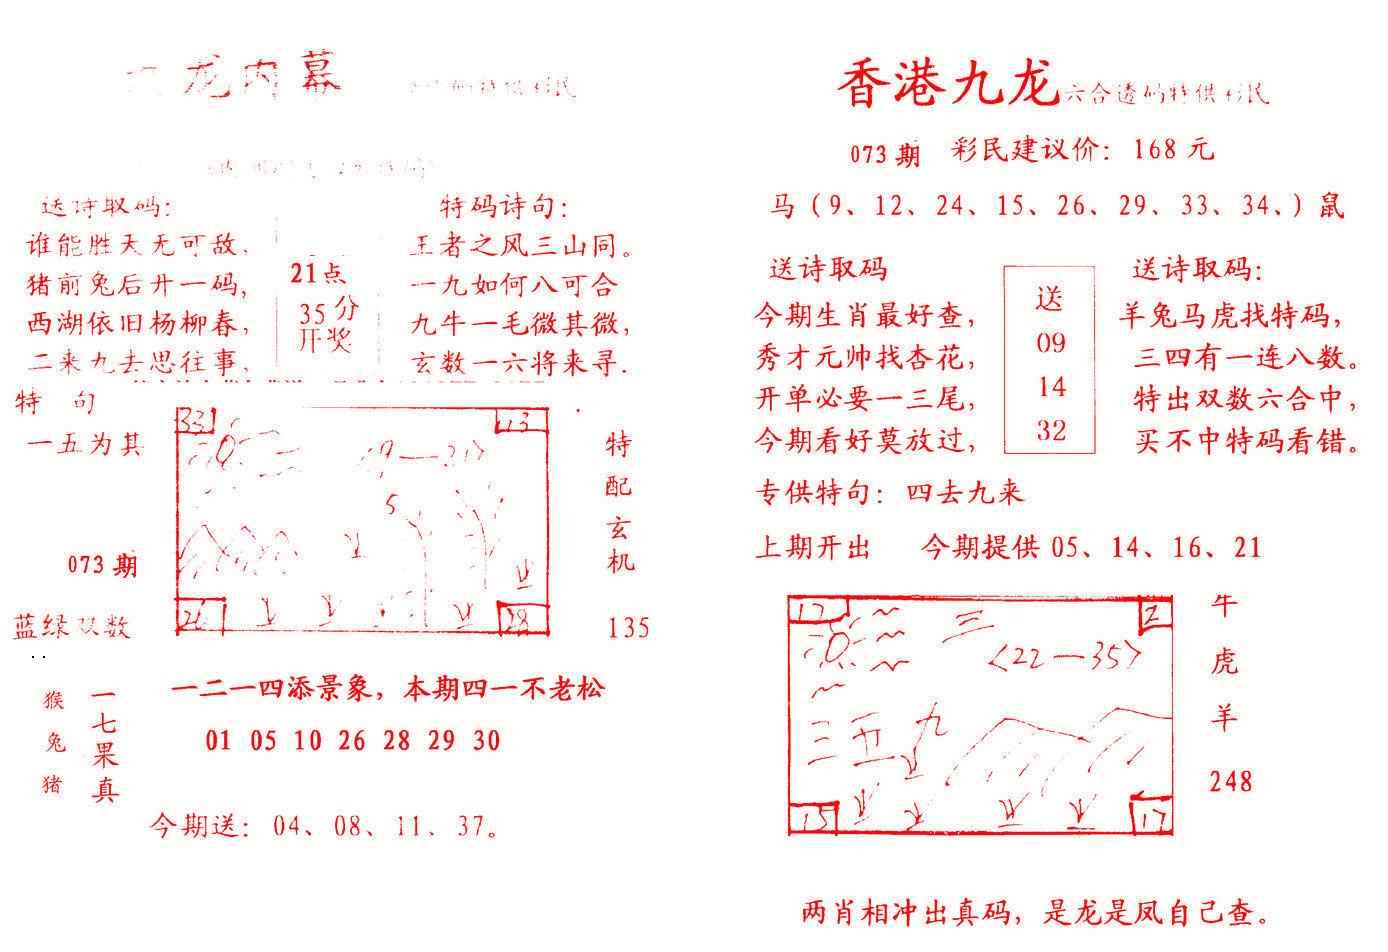 龙内幕
送诗取码：
谁能胜天无可敌，
猪前兔后廾一码，
西湖依旧杨柳春，
二来九去思往事，
21点
35分
开奖
特码诗句：
王者之风三山同。
一九如何八可合
九牛一毛微其微，
玄数一六将来寻.
特 句
一五为其
073期
蓝绿双数
33
13
<9—31>
5
26
28
特
配
玄
机
135
猴
兔
猪
一
七
果
真
一二一四添景象，本期四一不老松
01 05 10 26 28 29 30
今期送：04、08、11、37。
香港九龙六合透码特供彩民
073期 彩民建议价：168元
马（9、12、24、15、26、29、33、34、）鼠
送诗取码
今期生肖最好查，
秀才元帅找杏花，
开单必要一三尾，
今期看好莫放过，
送
09
14
32
送诗取码：
羊兔马虎找特码，
三四有一连八数。
特出双数六合中，
买不中特码看错。
专供特句：四去九来
上期开出 今期提供05、14、16、21
2
三
<22—35>
三五九
15
17
牛
虎
羊
248
两肖相冲出真码，是龙是凤自己查。